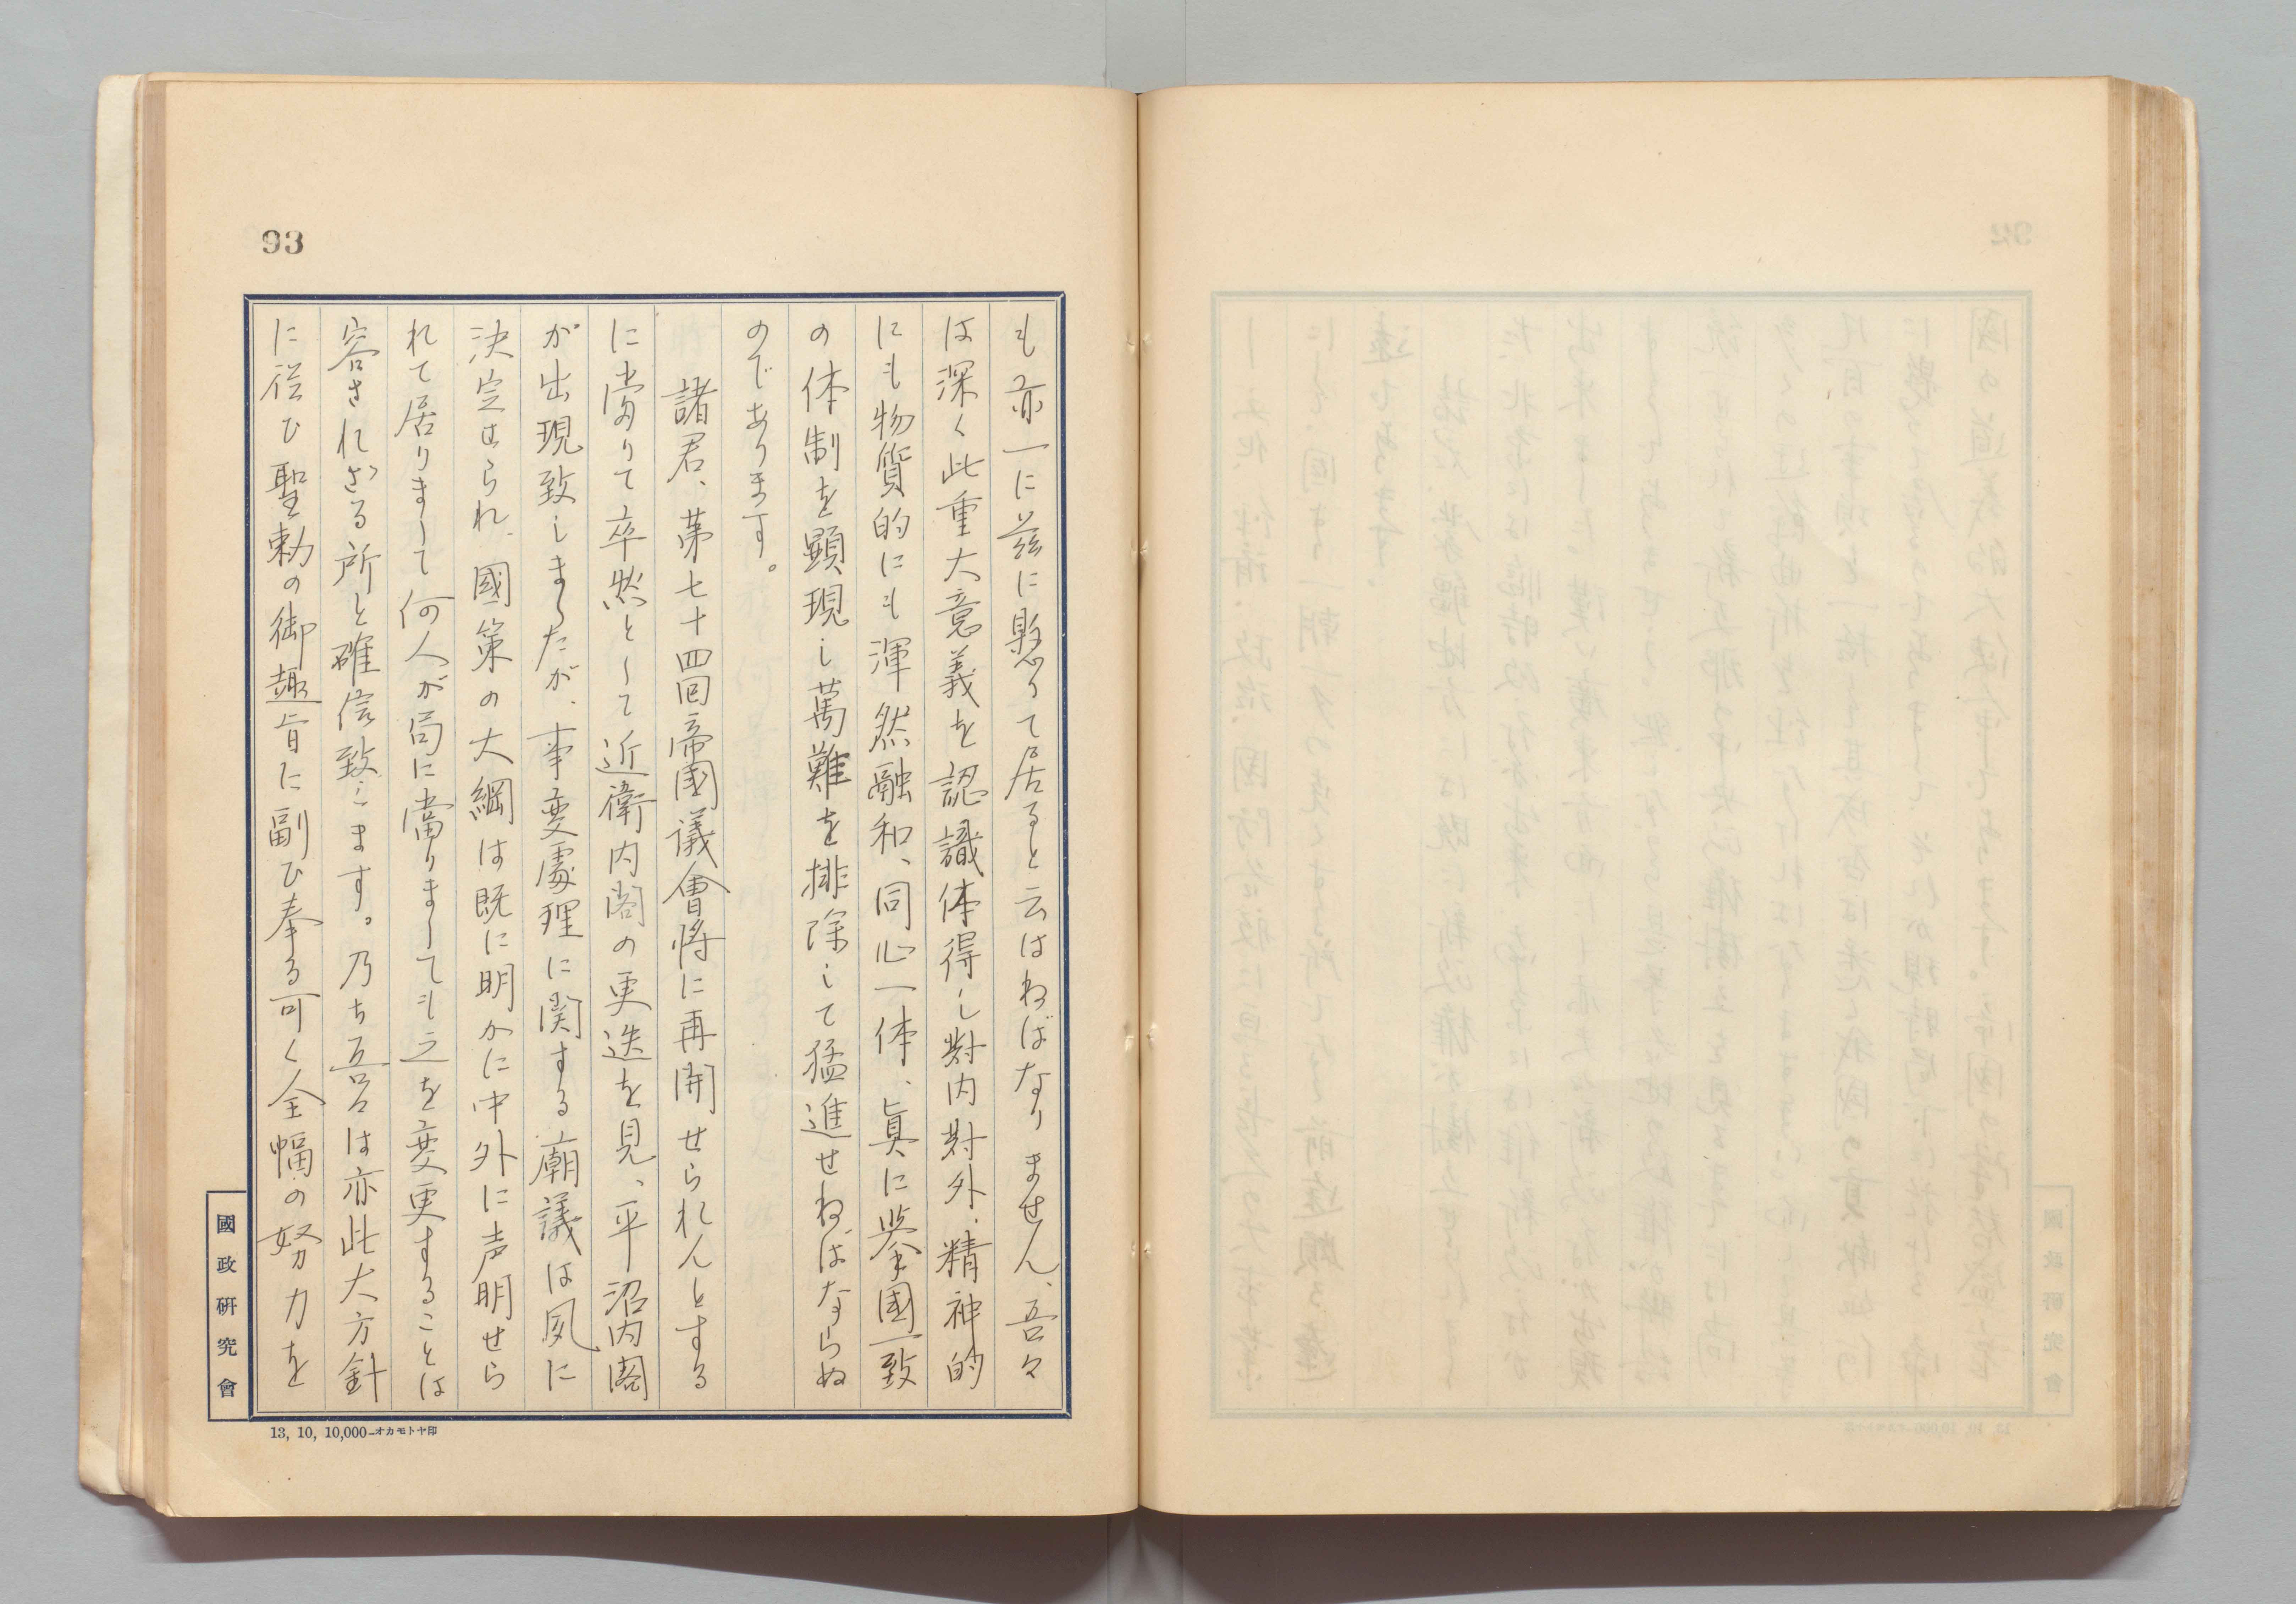 93
も亦一に茲に懸つて居ると云はねばなりません、吾々
は深く此重大意義を認識体得し對内對外、精神的
にも物質的にも渾然融和、同心一体、眞に挙國一致
の体制を顕現し萬難を排除して猛進せねばならぬ
のであります。
諸君、第七十四回帝國議會将に再開せられんとする
に當りて卒然として近衛内閣の更迭を見、平沼内閣
が出現致しましたが、事変處理に関する廟議は夙に
決定せられ、國策の大綱は既に明かに中外に声明せら
れて居りまして何人が局に當りましても之を変更することは
容されざる所と確信致します。乃ち吾々は亦此大方針
に従ひ聖勅の御趣旨に副ひ奉る可く全幅の努力を
國政研究會
13, 10, 10,000—オカモトヤ印